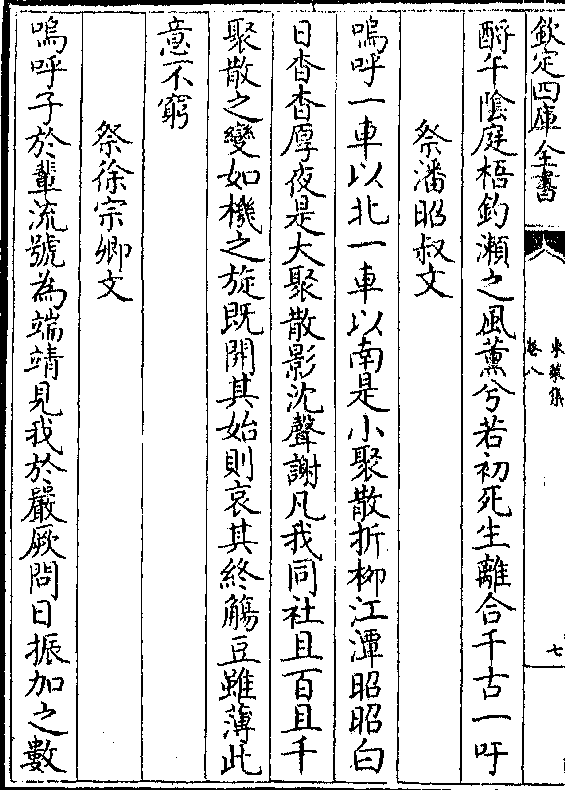 欽定四庫全書
東萊集
卷八
七
酹午隂庭梧釣瀬之風薫兮若初死生離合千古一吁
祭潘昭叔文
嗚呼一車以北一車以南是小聚散折柳江潭昭昭白
日杳杳厚夜是大聚散影沈聲謝凡我同社且百且千
聚散之變如機之旋既開其始則哀其終觴豆雖薄此
意不窮
祭徐宗卿文
嗚呼子於輩流號為端靖見我於嚴厥問日振加之數